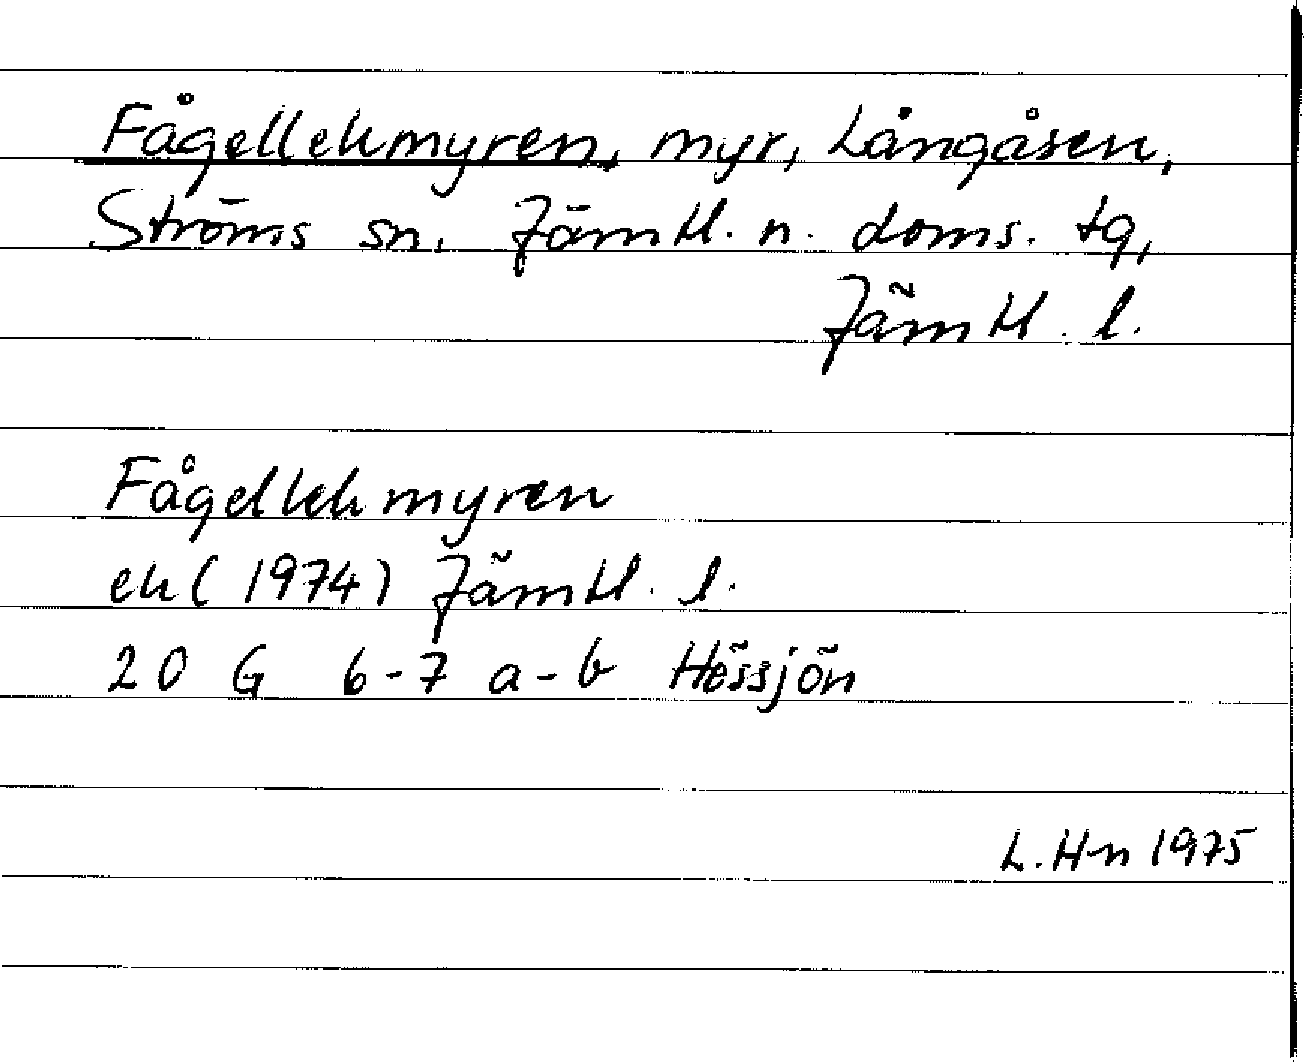 Fågellekmyren, myr, Långåsen,
Ströms sn. Jämtl. n. doms. tg,
Jämtl. l.
Fågellekmyren
ek (1974) Jämtl. l.
20 G 6-7 a-b Hässjön
L. H-n 1975